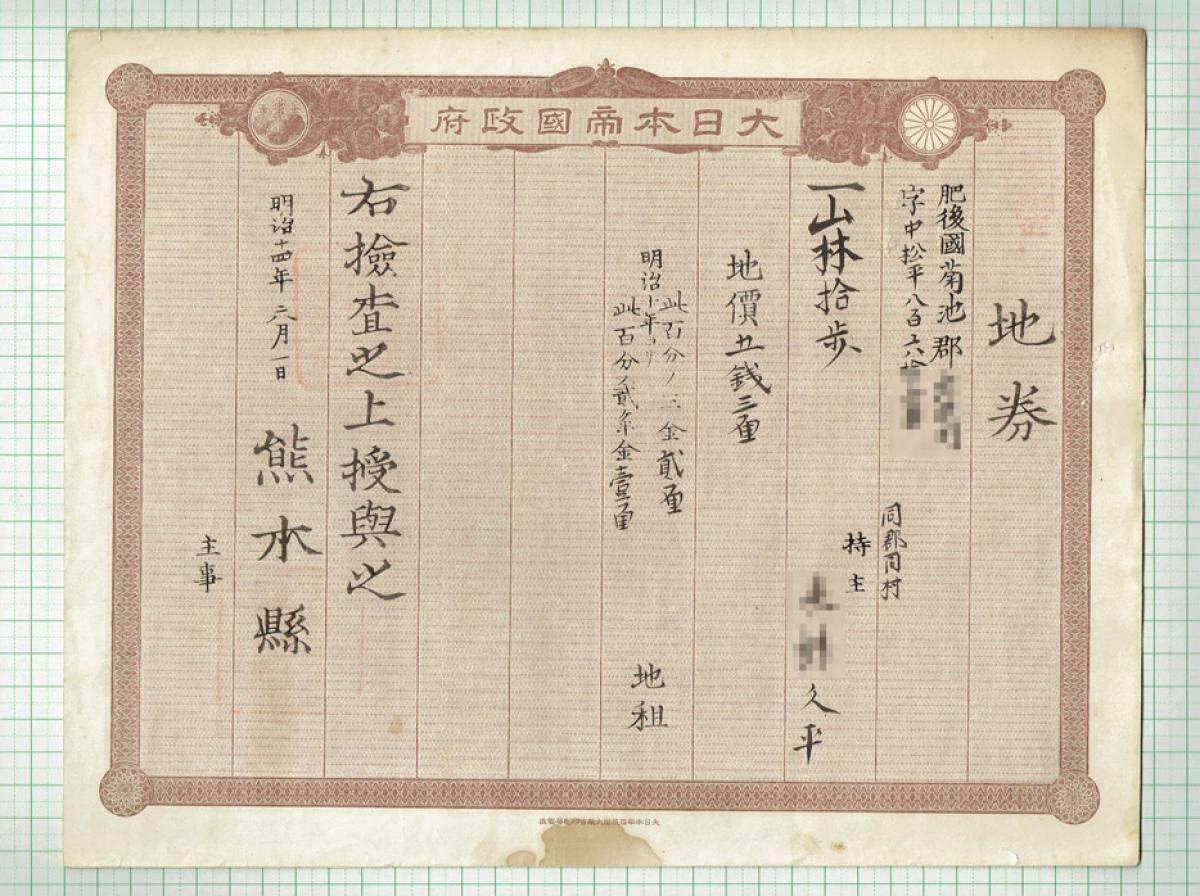 大日本帝國政府
地券
肥後國菊池郡
字中松平八百六拾
同郡同村
持主
久平
一山林拾歩
地價五銭三厘
此百分ノ三金貳厘
明治十年ヨリ
此百分ノ貳ケ半金壹厘
地租
右撿査之上授與之
明治十四年六月一日
熊本縣
主事